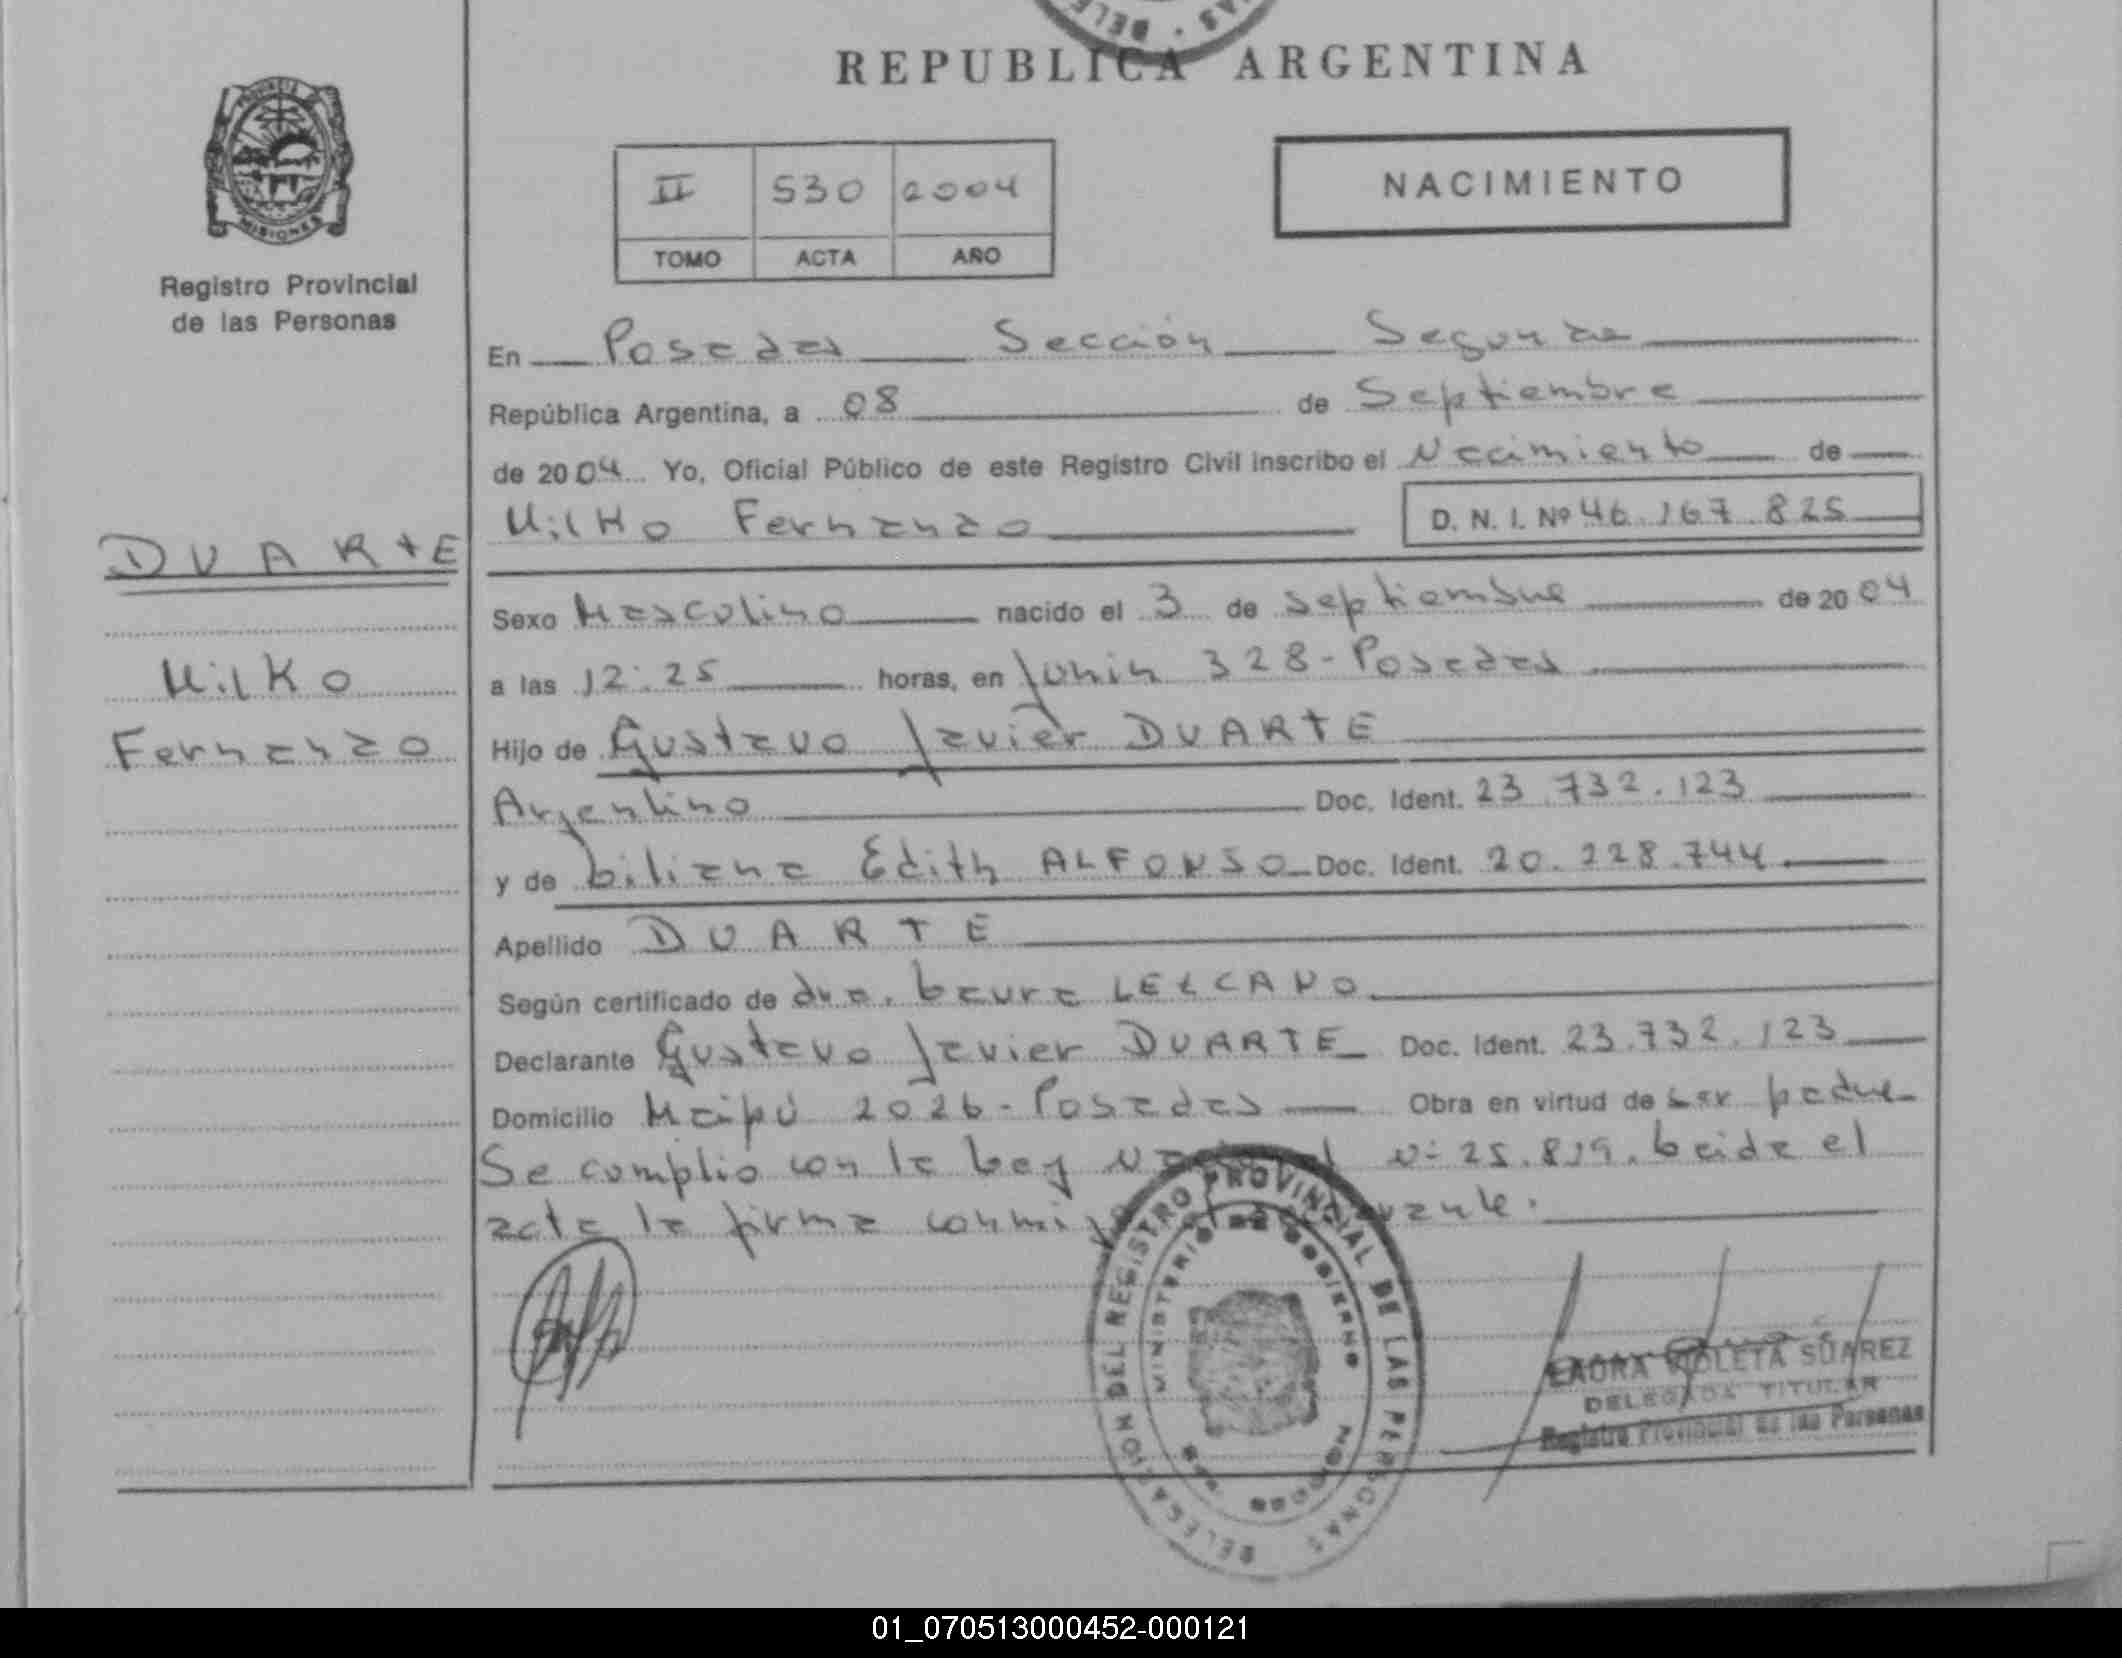 REPUBLICA ARGENTINA
PROVINCIA DE
MISIONES
Registro Provincial
de las Personas
II 530 2004
TOMO ACTA AÑO
NACIMIENTO
En Posadas Sección Segunda
República Argentina, a 08 de Septiembre
de 2004 Yo, Oficial Público de este Registro Civil inscribo el Nacimiento de
Milko Fernando D. N. I. Nº 46.167.825
DUARTE
Milko
Fernando
Sexo Masculino nacido el 3 de septiembre de 2004
a las 12:25 horas, en Junín 328-Posadas
Hijo de Gustavo Javier DUARTE
Argentino Doc. Ident. 23.732.123
y de Liliana Edith ALFONSO Doc. Ident. 20.228.744
Apellido DUARTE
Según certificado de dra. Laura LEZCANO
Declarante Gustavo Javier DUARTE Doc. Ident. 23.732.123
Domicilio Maipú 2026-Posadas Obra en virtud de ser padre
Se cumplió con la Ley Nacional Nº 25.819. Leida el
acta la firma conmigo el declarante.
DELEGACION DEL REGISTRO PROVINCIAL DE LAS PERSONAS
MINISTERIO DE GOBIERNO
LAURA VIOLETA SUAREZ
DELEGADA TITULAR
Registro Provincial de las Personas
01_070513000452-000121